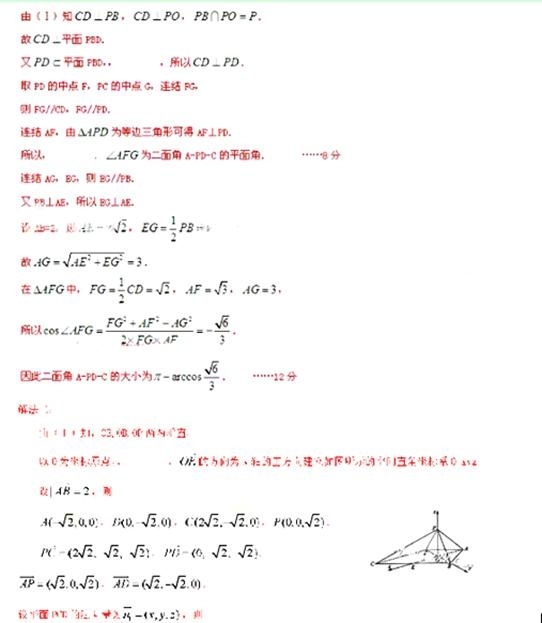 由（1）知CD⊥PB，CD⊥PO，PB∩PO=P．
故CD⊥平面PBD．
又PD⊂平面PBD，，所以CD⊥PD．
取PD的中点F，PC的中点G，连结FG，
则FG//CD，FG//PD．
连结AF，由△APD为等边三角形可得AF⊥PD．
所以，．∠AFG为二面角A-PD-C的平面角．……8分
连结AG，EG，则EG//PB．
又PB⊥AE，所以EG⊥AE．
设AB=2，则AE=√2，EG=1/2 PB=
故AG=√(AE²+EG²)=3．
在△AFG中，FG=1/2 CD=√2，AF=√3，AG=3，
所以cos∠AFG=(FG²+AF²-AG²)/(2×FG×AF)=-√6/3．
因此二面角A-PD-C的大小为π-arccos √6/3．……12分
解法
由（1）知，OE,OB,OP两两垂直
以O为坐标原点，，OE的方向为x轴的正方向建立如图所示的空间直角坐标系O-xyz
设|AB=2，则
A(-√2,0,0)．D(0,-√2,0)．C(2√2,-√2,0)．P(0,0,√2)．
PC=(2√2, √2, √2)．PD=(0, √2, √2)．
AP=(√2,0,√2)．AD=(√2,-√2,0)．
设平面 n₁=(x,y,z)，则